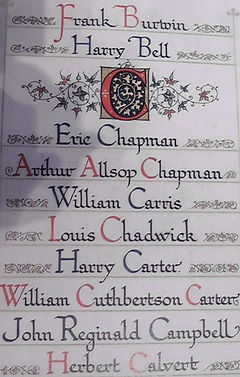 Frank Burwin
Harry Bell
C
Eric Chapman
Arthur Allsop Chapman
William Carris
Louis Chadwick
Harry Carter
William Cuthbertson Carter
John Reginald Campbell
Herbert Calvert